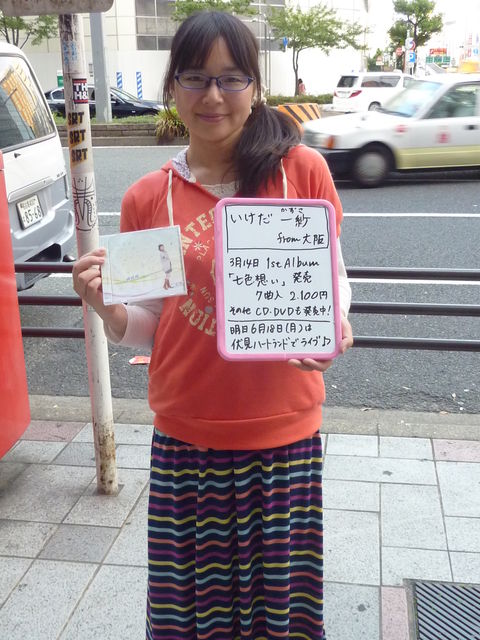 いけだ 一紡
かずさ
from 大阪
3月14日 1st Album
「七色想い」発売
7曲入 2.100円
その他 CD・DVDも発売中!
明日6月18日(月)は
伏見ハートランドでライブ♪
SRT
SRT
SRT
85-68